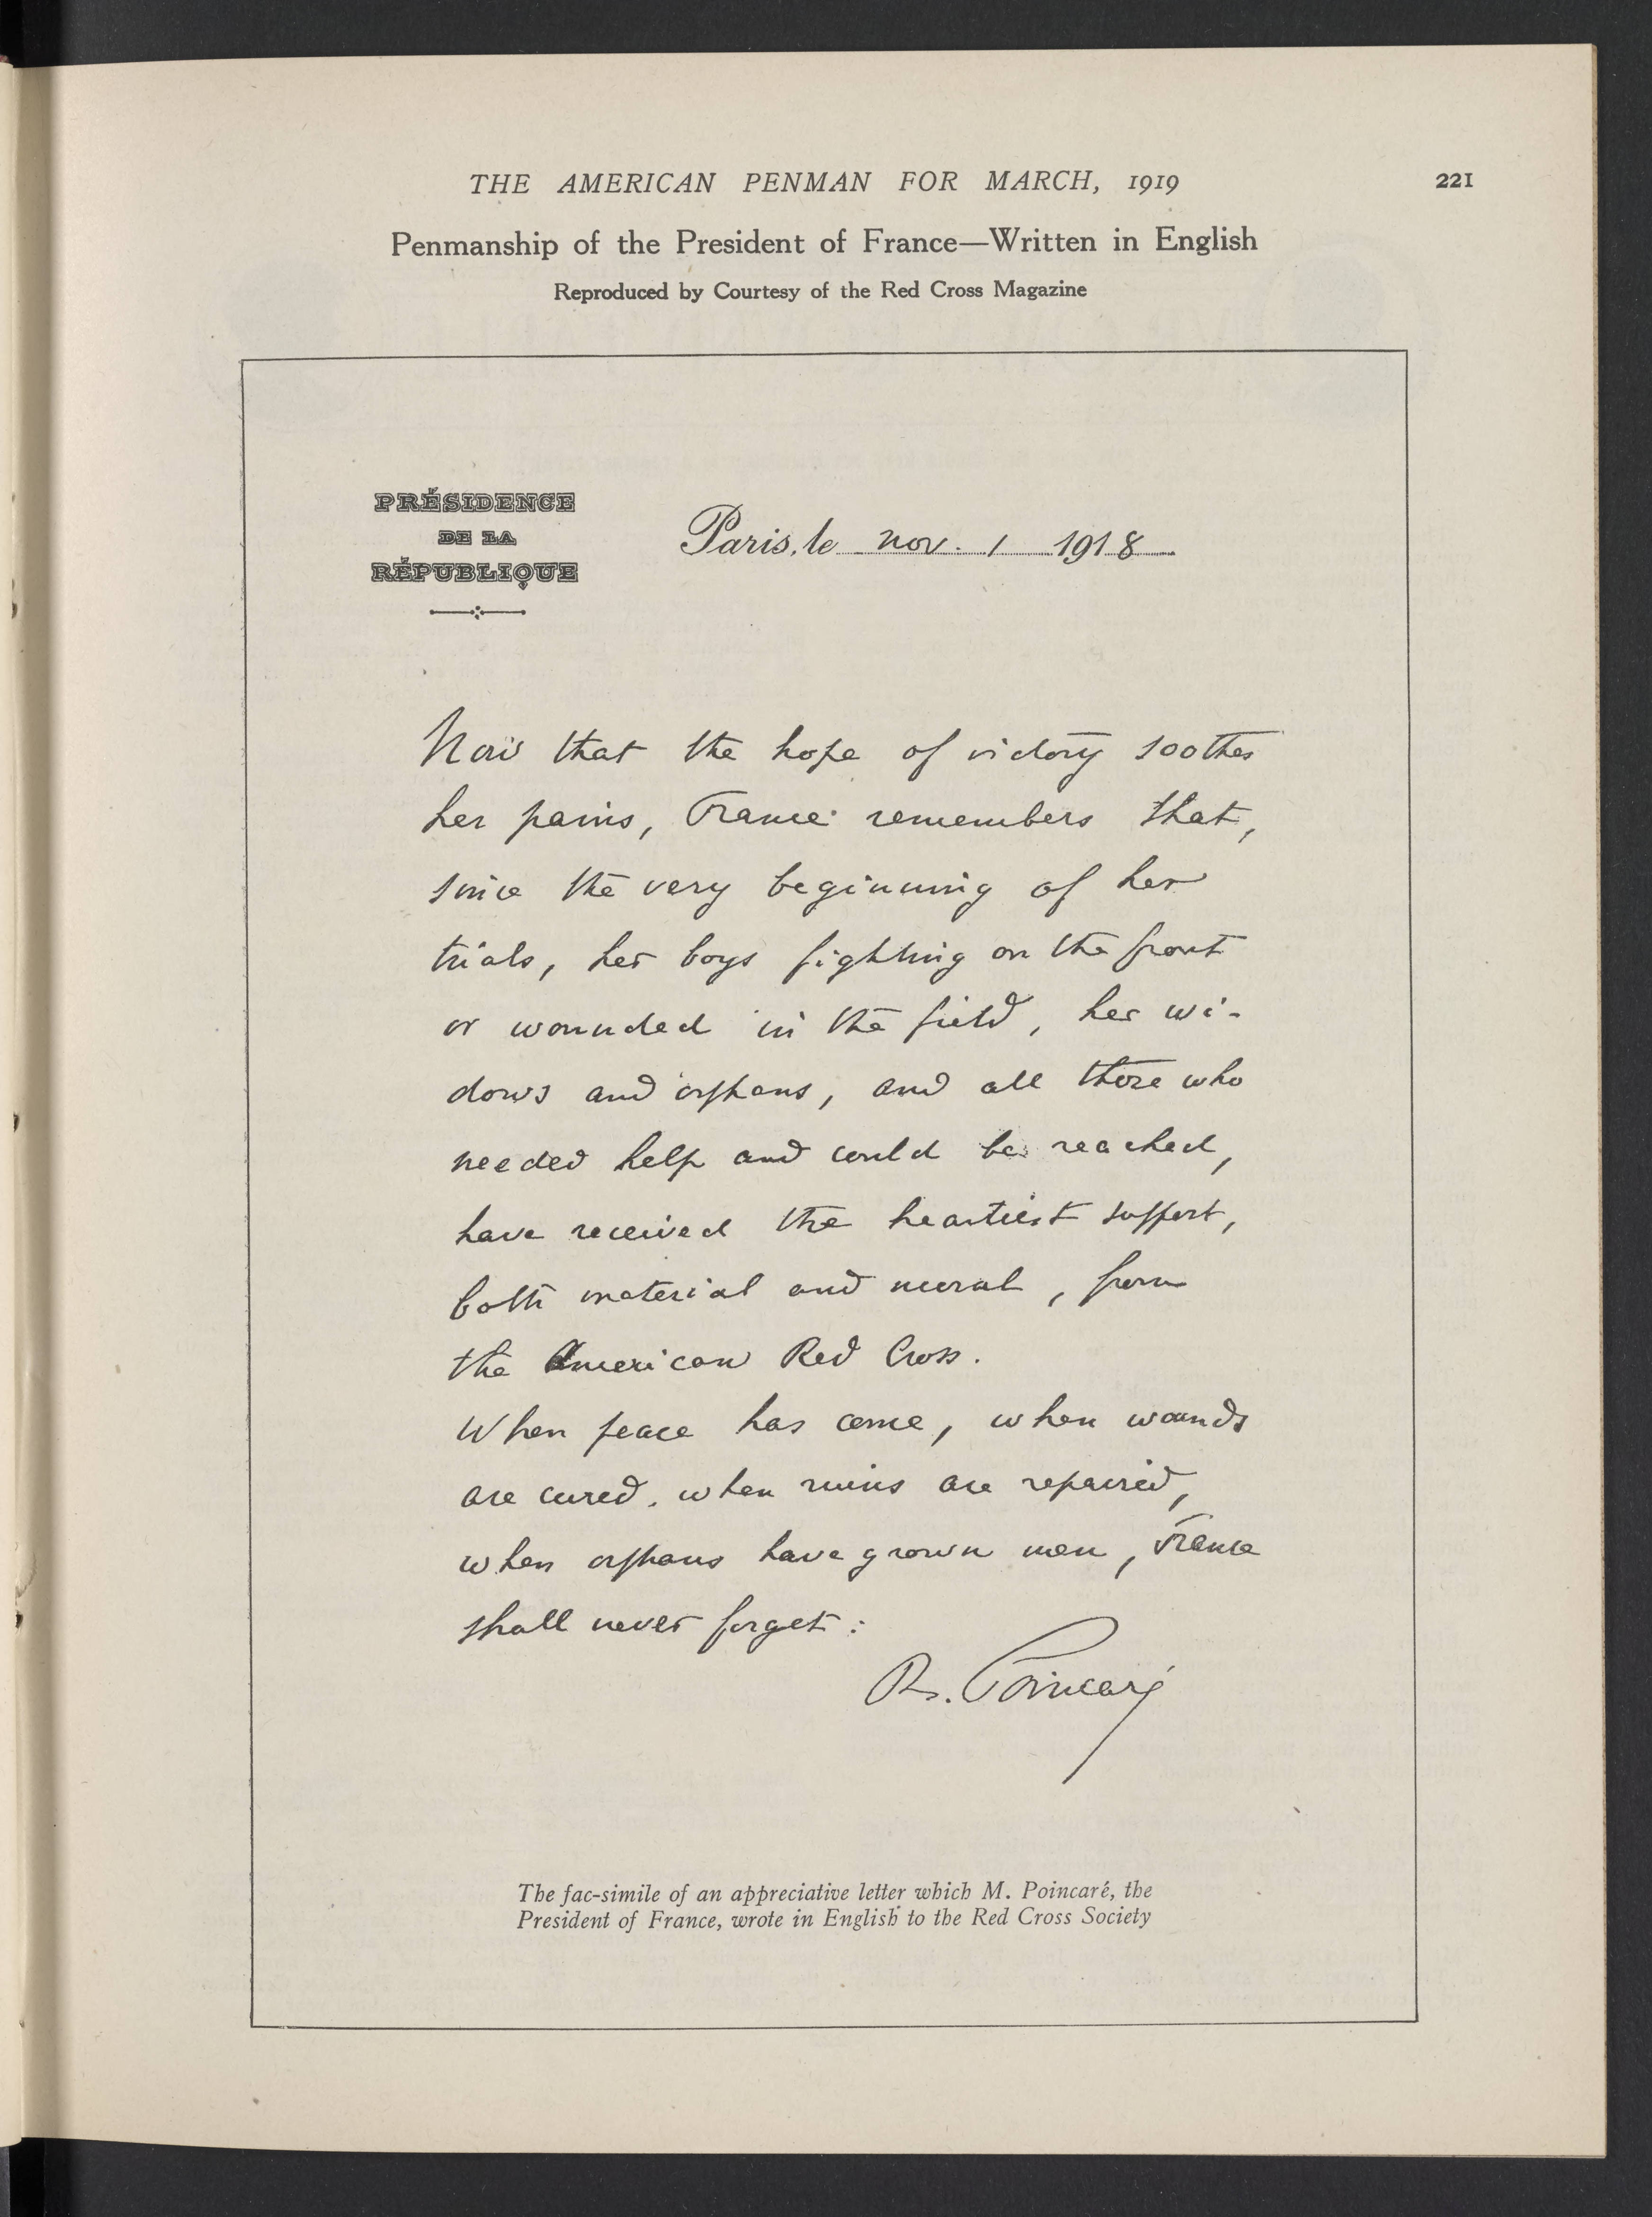 THE AMERICAN PENMAN FOR MARCH, 1919 221
Penmanship of the President of France—Written in English
Reproduced by Courtesy of the Red Cross Magazine
PRÉSIDENCE
DE LA
RÉPUBLIQUE
Paris, le nov. 1 1918
Now that the hope of victory soothes
her pains, France remembers that,
since the very beginning of her
trials, her boys fighting on the front
or wounded in the field, her wi-
dows and orphans, and all those who
needed help and could be reached,
have received the heartiest support,
both material and moral, from
the American Red Cross.
When peace has come, when wounds
are cured, when ruins are repaired,
when orphans have grown men, France
shall never forget:
R. Poincaré
The fac-simile of an appreciative letter which M. Poincaré, the
President of France, wrote in English to the Red Cross Society